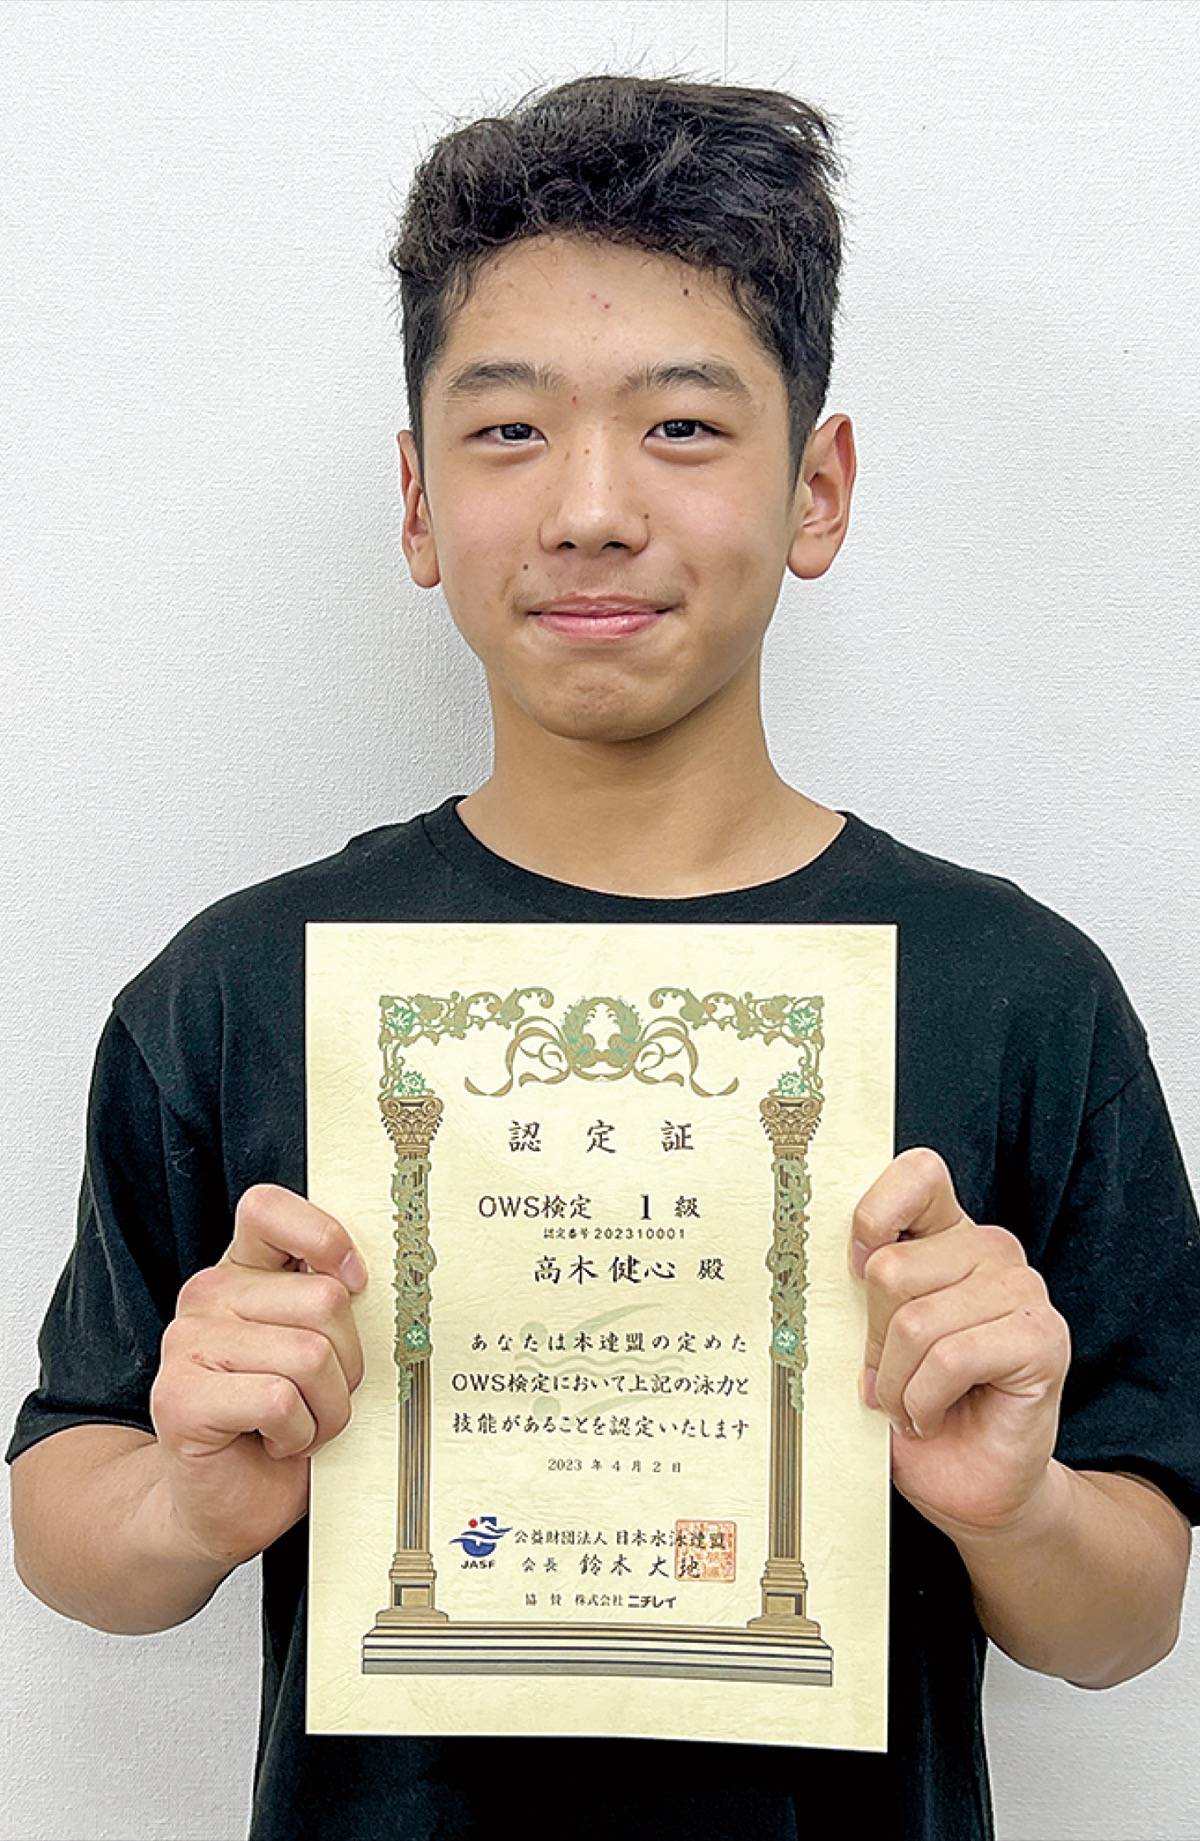 認定証
OWS検定 1級
認定番号 202310001
高木健心 殿
あなたは本連盟の定めた
OWS検定において上記の泳力と
技能があることを認定いたします
2023年4月2日
JASF
公益財団法人 日本水泳連盟
会長 鈴木大地
協賛 株式会社 ニチレイ